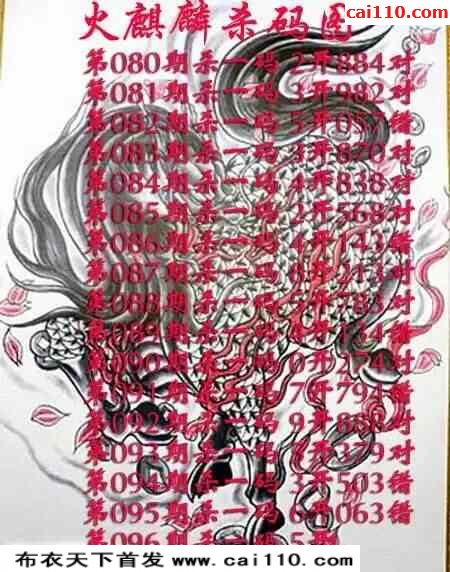 cai110.com
火麒麟杀码图
第080期杀一码 2开884对
第081期杀一码 3开982对
第082期杀一码 5开 错
第083期杀一码 3开870对
第084期杀一码 4开838对
第085期杀一码 2开568对
第086期杀一码 4开143错
第087期杀一码 6开213对
第088期杀一码 开783对
第089期杀一码 开124
第090期杀一码 0开274对
第091期杀一码 7开794错
第092期杀一码 9开888对
第093期杀一码 开379对
第094期杀一码 3开503错
第095期杀一码 6开063错
第096期杀一码 5
布衣天下首发 www.cai110.com